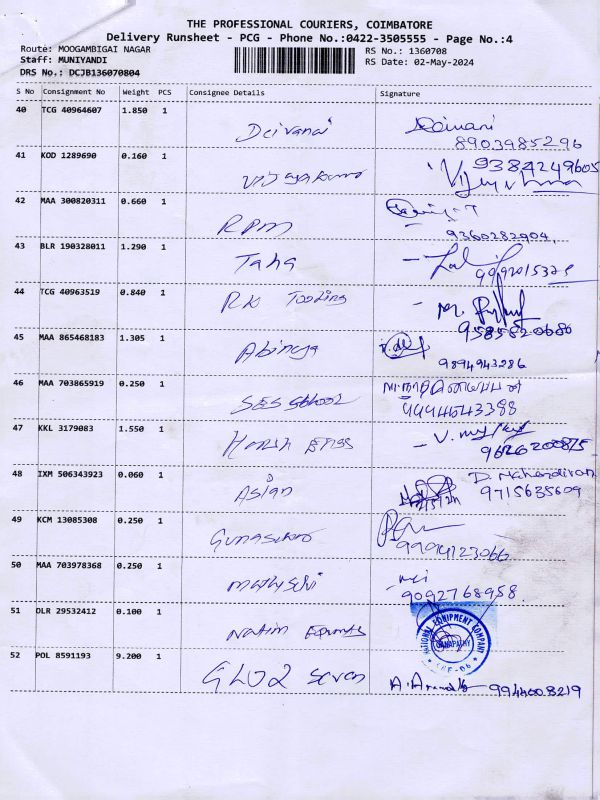 THE PROFESSIONAL COURIERS, COIMBATORE
Delivery Runsheet - PCG - Phone No.:0422-3505555 - Page No.:4
Route: MOOGAMBIGAI NAGAR RS No.: 1360708
Staff: MUNIYANDI RS Date: 02-May-2024
DRS No.: DCJB136070804
S No Consignment No Weight PCS Consignee Details Signature
40 TCG 40964607 1.850 1
Deivanai
8903985296
41 KOD 1289690 0.160 1 9384249605
Vijayakumar
42 MAA 300820311 0.660 1
RPM 9360282904
43 BLR 190328011 1.290 1
Taha
44 TCG 40963519 0.840 1
RK Tooling
45 MAA 865468183 1.305 1
Abineya 9894943286
46 MAA 703865919 0.250 1
SES School 9994643388
47 KKL 3179083 1.550 1
Harsh Engs 9626200875
48 IXM 506343923 0.060 1
Asian 9715635609
49 KCM 13085308 0.250 1
9994123066
50 MAA 703978368 0.250 1
9092768958
51 DLR 29532412 0.100 1
NATIONAL EQUIPMENT COMPANY
GANAPATHY
CBE-06
52 POL 8591193 9.200 1
Seven 9944008219